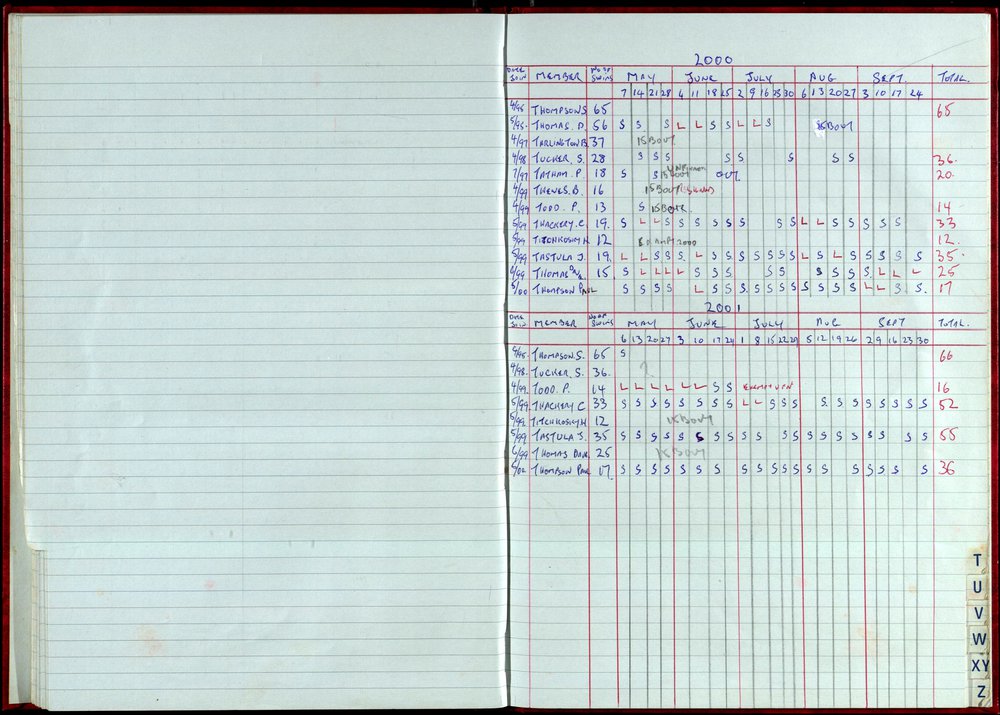 2000
DATE JOIN MEMBER NO OF SWIMS MAY JUNE JULY AUG SEPT. TOTAL.
7 14 21 28 4 11 18 25 2 9 16 23 30 6 13 20 27 3 10 17 24
4/95 THOMPSON S 65 65
5/95 THOMAS. D. 56 S S S L L S S L L S IS BOUT
4/97 TARLINGTON B. 37 IS BOUT
4/98 TUCKER. S. 28 S S S S S S S S 36.
7/97 TATHAM. P 18 S S IS BOUT OUT. 20.
4/99 THEWES. B. 16 IS BOUT
4/99 TODD. P. 13 S IS BOUT 14
5/99 THACKERY. C. 19. S L L S S S S S S S S L L S S S S S S 33
5/99 TITCHKOSKY H. 12 2000 12.
5/99 TASTULA J. 19. L L S S S L S S S S S S S S L S L S S S S S S 35.
6/99 THOMAS DAVE. 15. S L L L L S S S S S S S S S S L L L 25
5/00 THOMPSON PAUL S S S S L S S S S S S S S S S S S L L S S. 17
2001
DATE JOIN MEMBER NO OF SWIMS MAY JUNE JULY AUG SEPT TOTAL.
6 13 20 27 3 10 17 24 1 8 15 22 29 5 12 19 26 2 9 16 23 30
4/95 THOMPSON S. 65 S 66
4/98. TUCKER. S. 36. ?
4/99 TODD. P. 14 L L L L L L S S EXEMPTION 16
5/99. THACKERY C. 33 S S S S S S S S L L S S S S S S S S S S S 52
5/99. TITCHKOSKY H 12 IS BOUT
5/99 TASTULA J. 35 S S S S S S S S S S S S S S S S S S S S 55
6/99 THOMAS DAVE 25 IS BOUT
5/00 THOMPSON PAUL 17. S S S S S S S S S S S S S S S S S S S 36
T
U
V
W
XY
Z